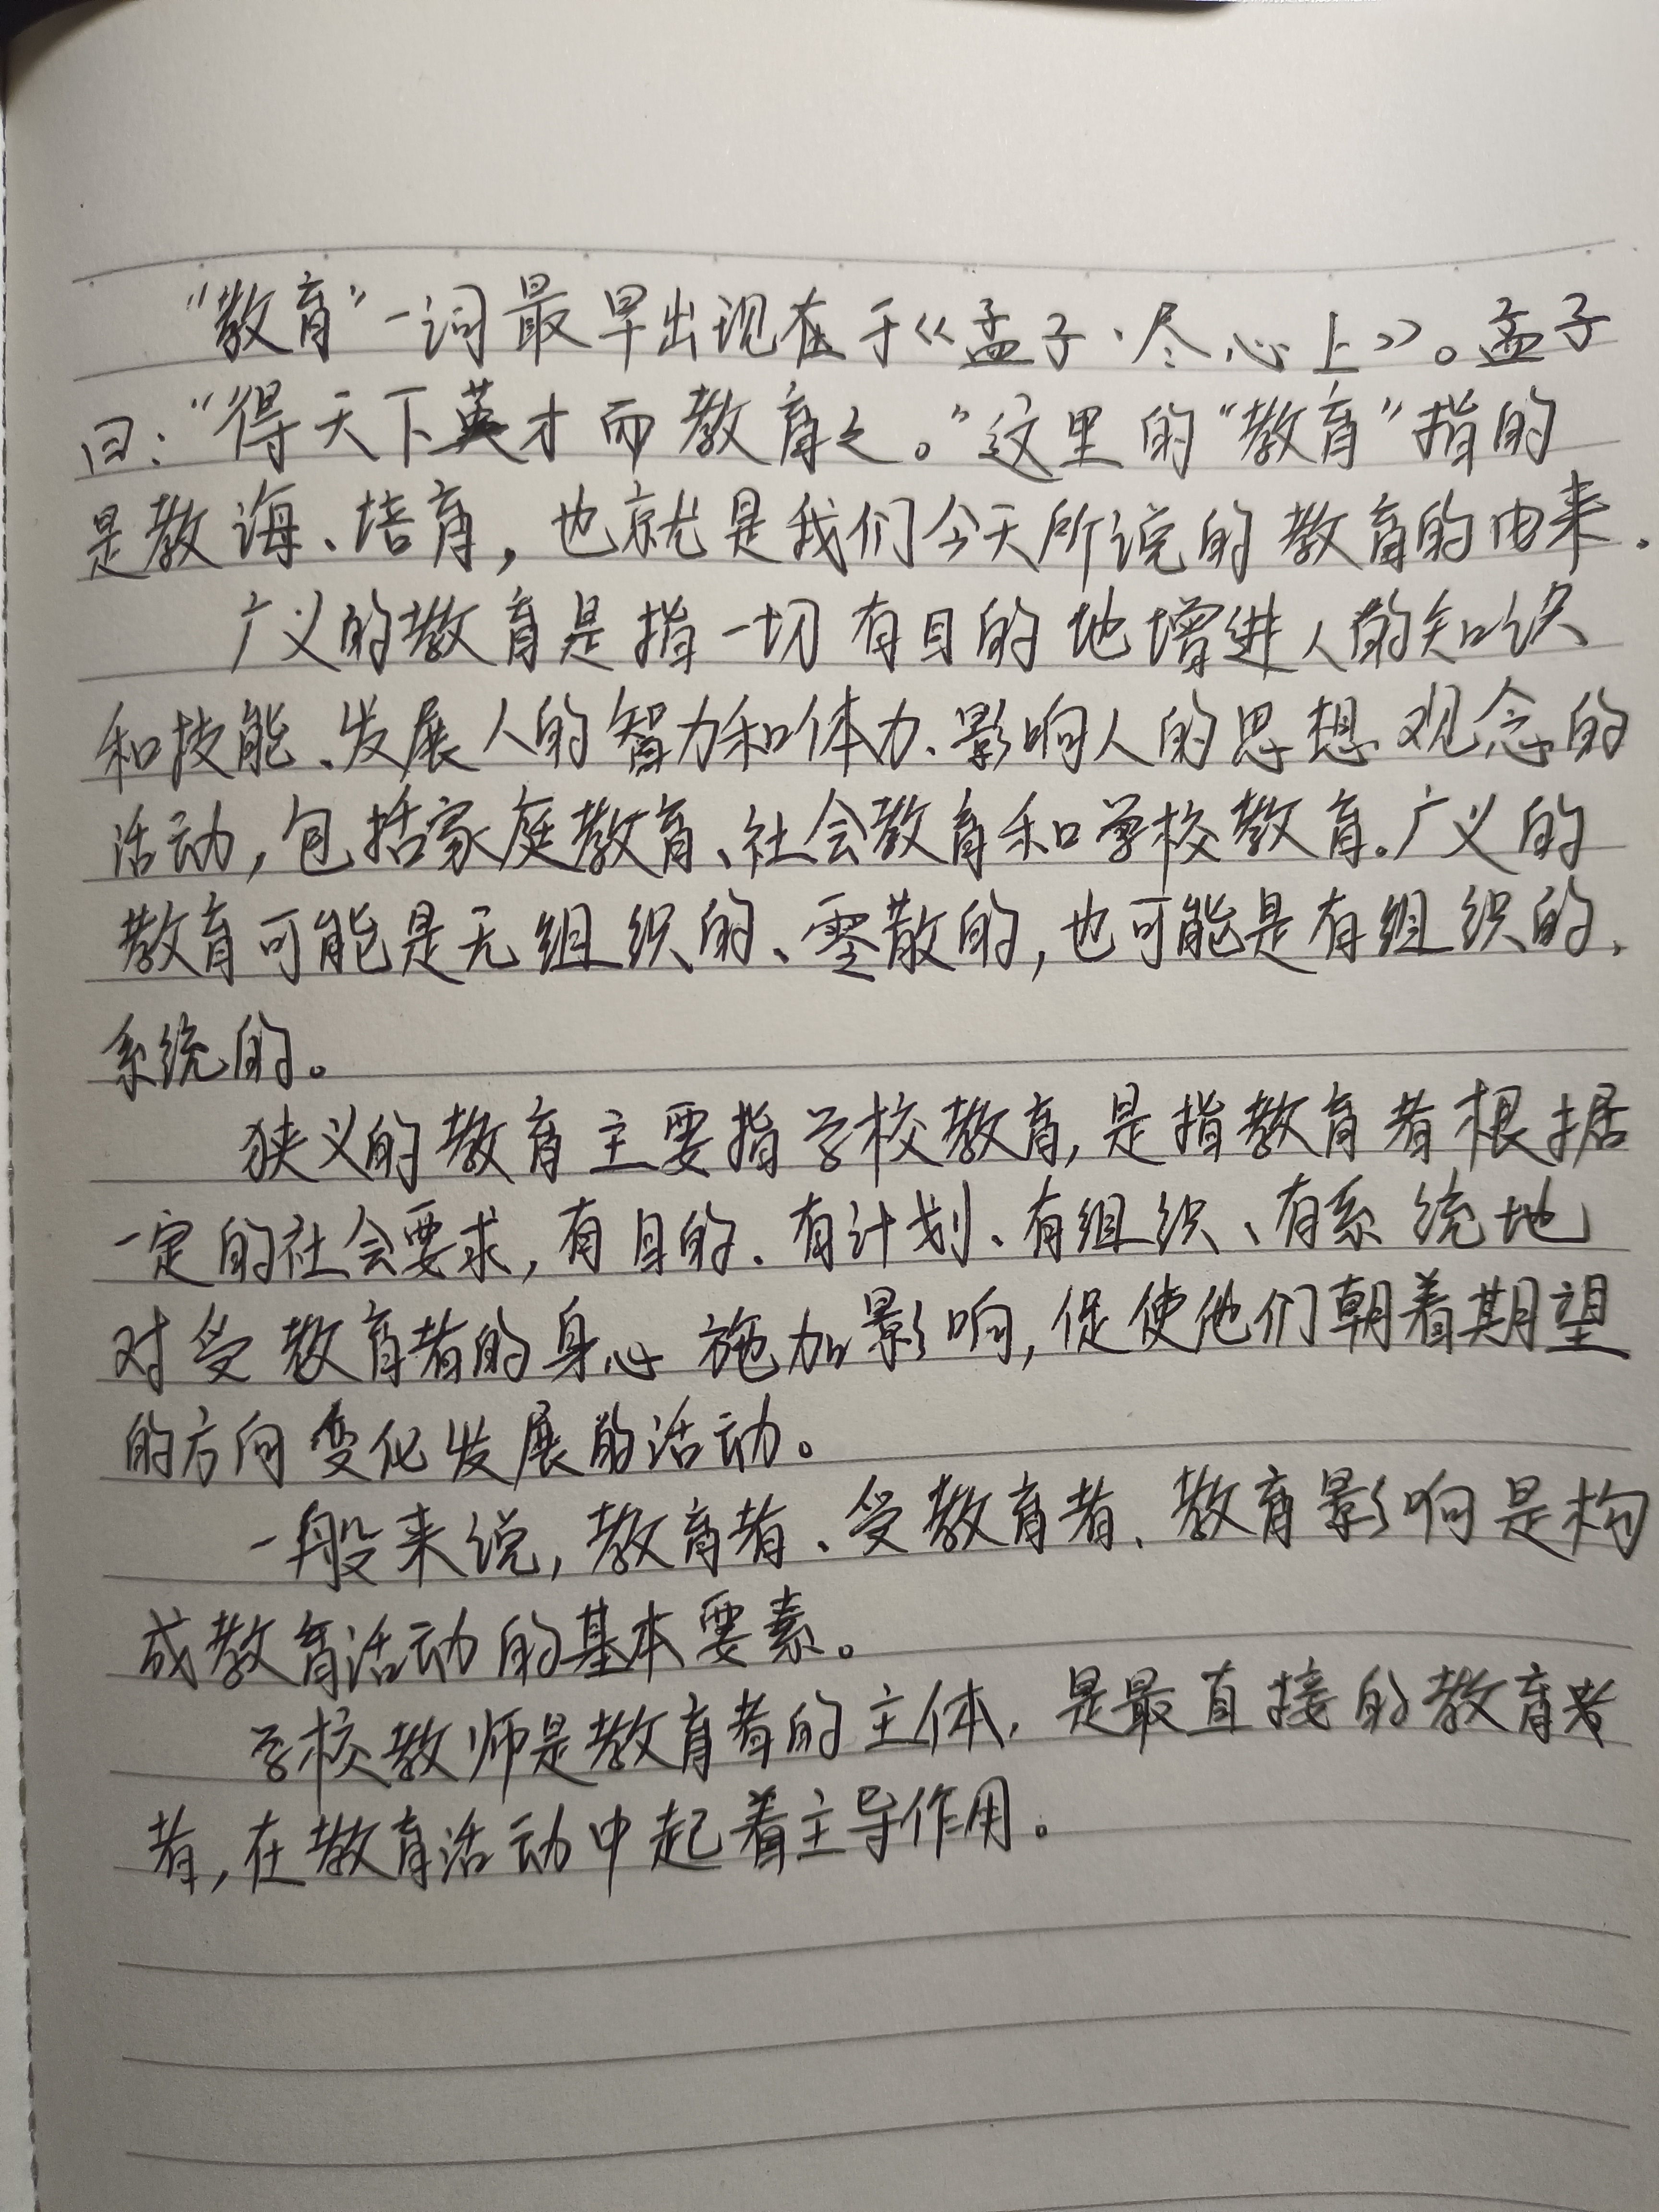 “教育”一词最早出现在于《孟子·尽心上》。孟子
曰：“得天下英才而教育之。”这里的“教育”指的
是教诲、培育，也就是我们今天所说的教育的由来.
广义的教育是指一切有目的地增进人的知识
和技能、发展人的智力和体力、影响人的思想观念的
活动，包括家庭教育、社会教育和学校教育。广义的
教育可能是无组织的、零散的，也可能是有组织的、
系统的。
狭义的教育主要指学校教育，是指教育者根据
一定的社会要求，有目的、有计划、有组织、有系统地
对受教育者的身心施加影响，促使他们朝着期望
的方向变化发展的活动。
一般来说，教育者、受教育者、教育影响是构
成教育活动的基本要素。
学校教师是教育者的主体，是最直接的教育者
者，在教育活动中起着主导作用。